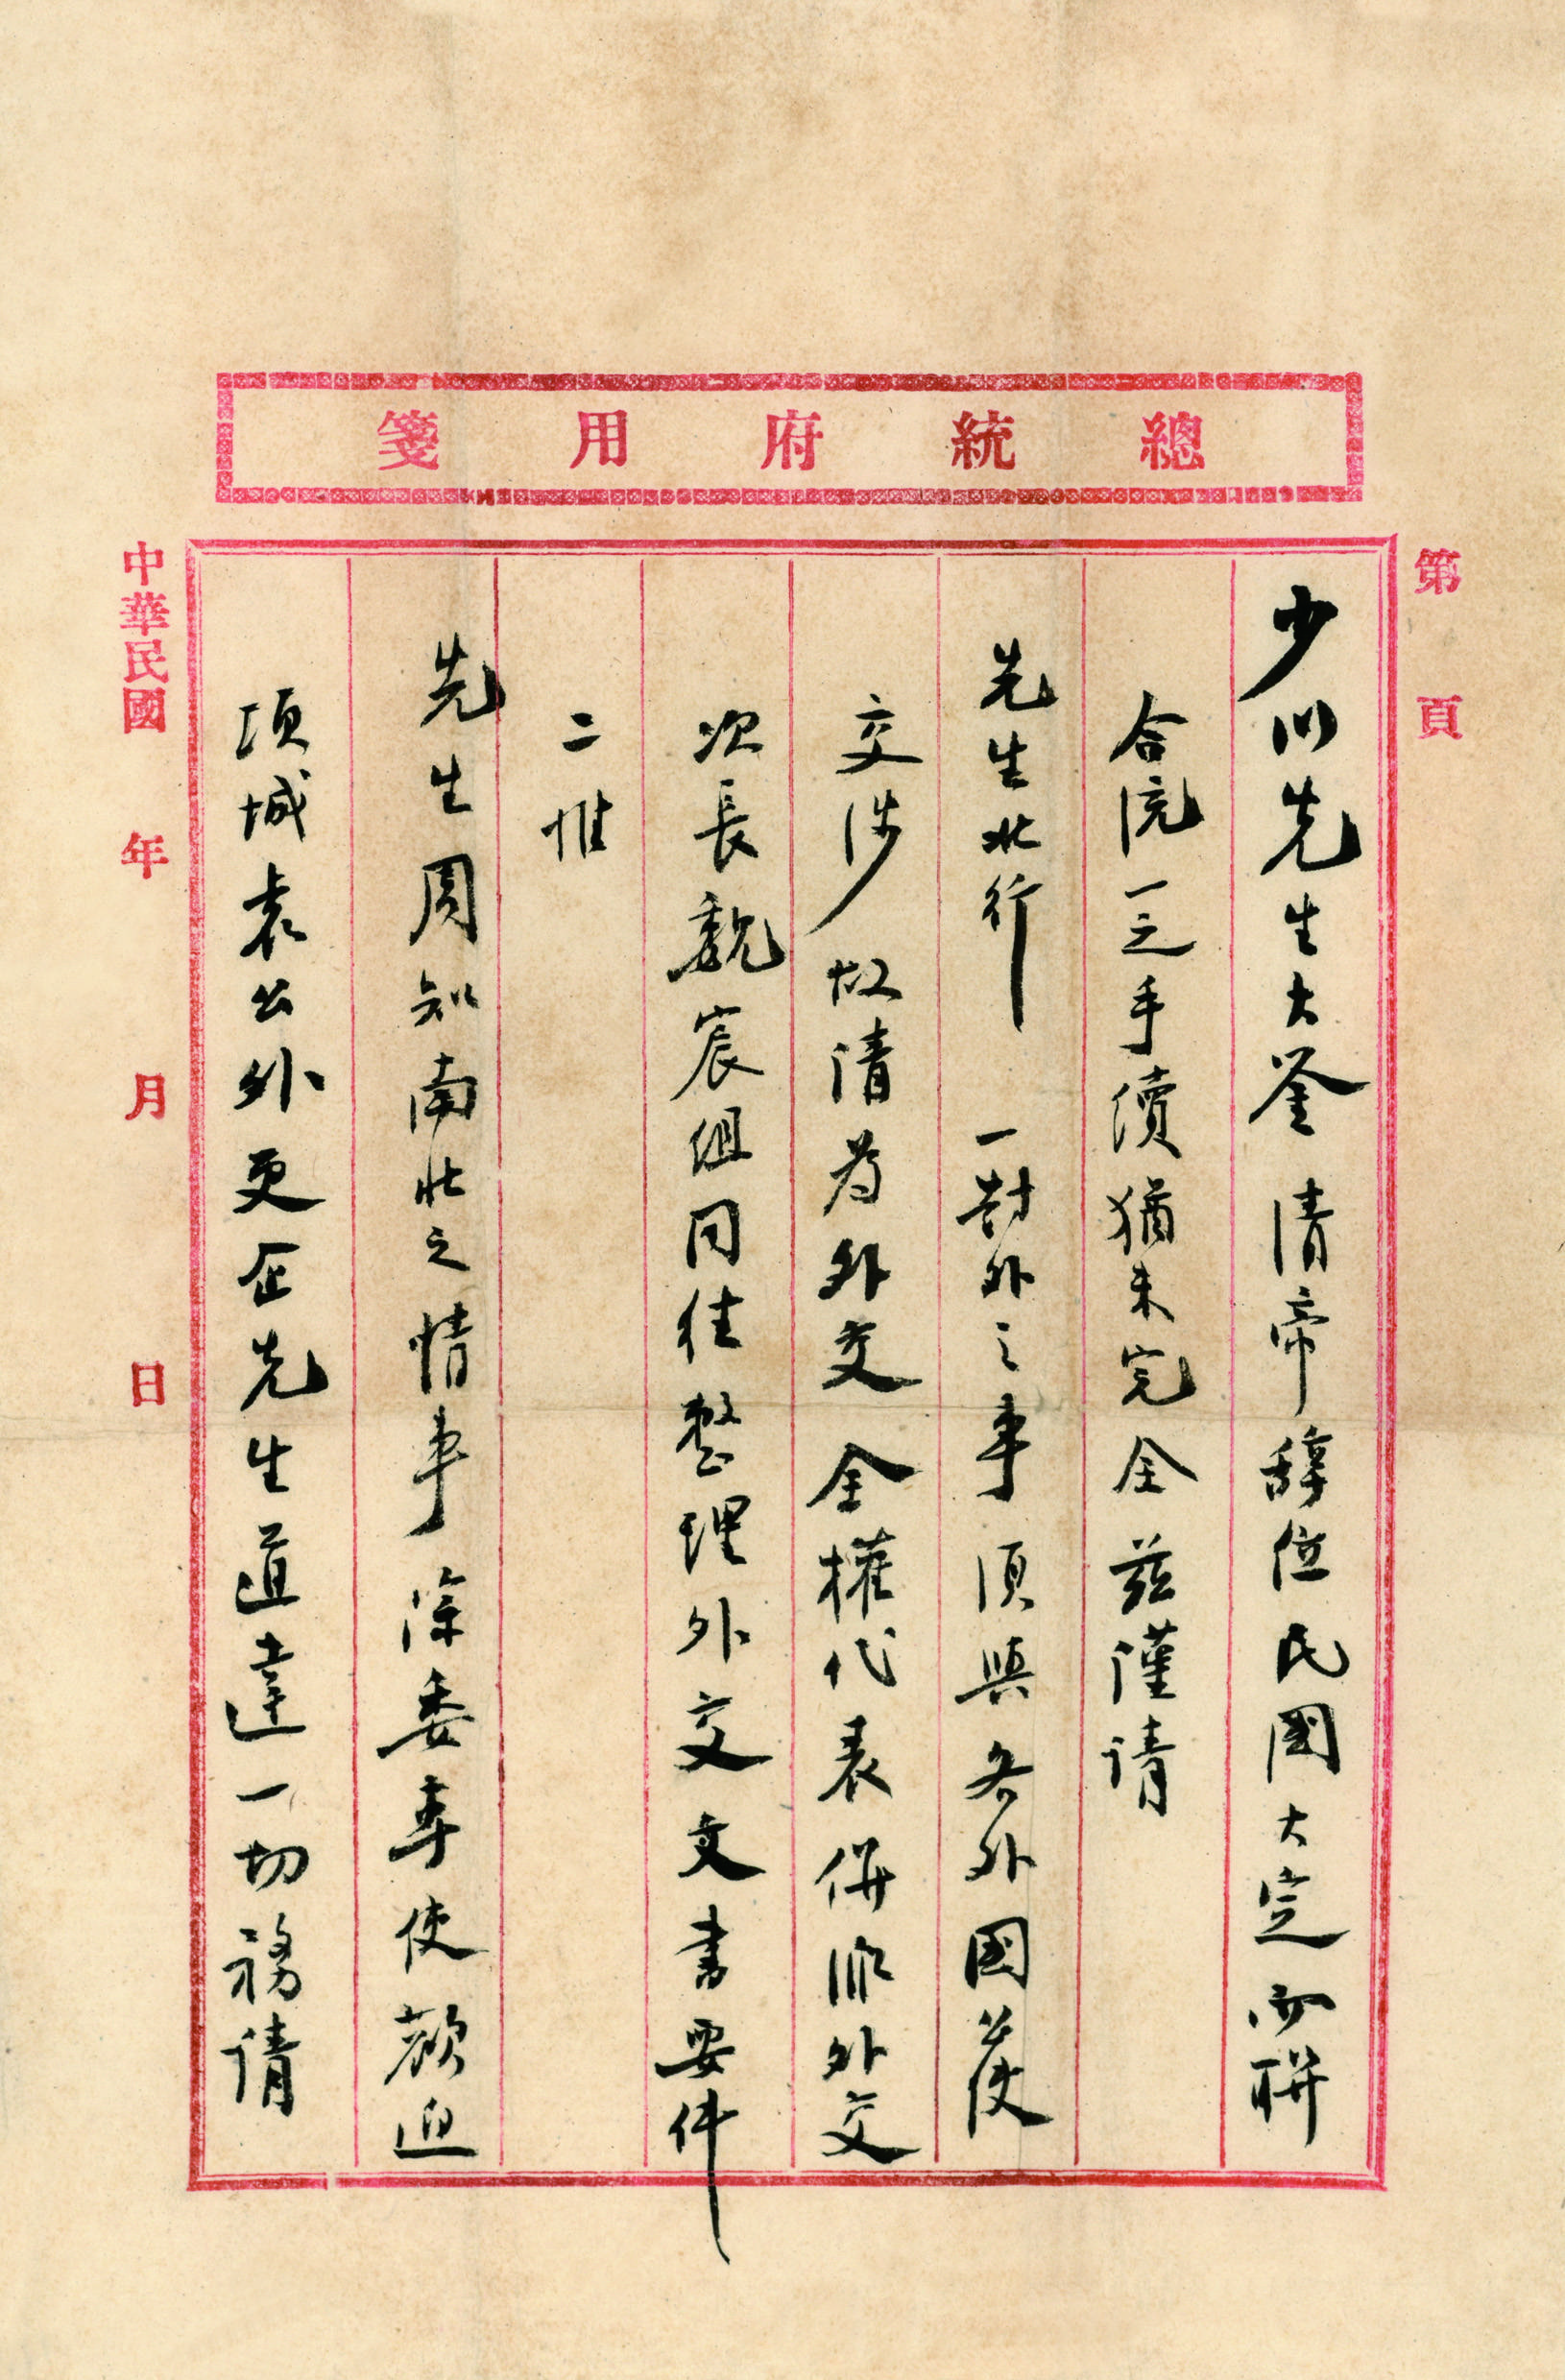 總統府用箋
第 頁
少川先生大鑒 清帝辭位民國大定而聯
合統一之手續猶未完全茲謹請
先生北行 一對外之事須與各外國公使
交涉故請為外交全權代表併派外交
次長魏宸組同往整理外交文書要件
二惟
先生周知南北之情事除委專使歡迎
項城袁公外更企先生道達一切務請
中華民國 年 月 日